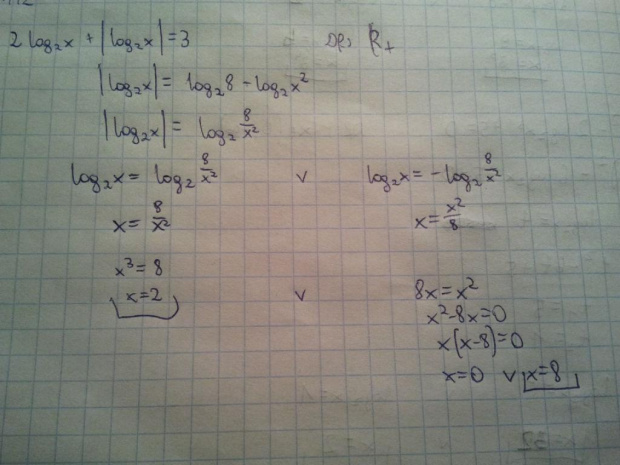 2 log₂x + |log₂x| = 3 Df: ℝ₊
|log₂x| = log₂8 - log₂x²
|log₂x| = log₂ 8/x²
log₂x = log₂ 8/x² v log₂x = -log₂ 8/x²
x = 8/x² x = x²/8
x³ = 8
x = 2 v 8x = x²
x² - 8x = 0
x(x-8) = 0
x = 0 v x = 8